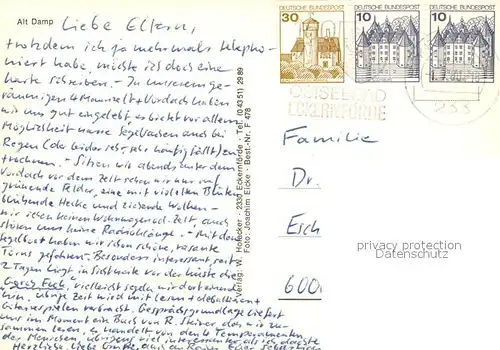 Alt Damp
Liebe Eltern,
trotzdem ich ja mehrmals telepho-
niert habe, möchte ich doch eine
Karte schreiben. - In unserem ge-
räumigen 4 Mannzelt + Vordach haben
wir uns gut eingelebt, es bietet vor allem
Möglichkeit nasse Segelsachen auch bei
Regen (der leider sehr, sehr häufig fällt) zu
trocknen. - Sitzen wir abends unter dem
Vordach vor dem Zelt sehen wir nur auf
grünende Felder, eine mit violetten Blüten
blühende Hecke und ziehende Wolken -
wir sehen keinen Wohnwagen od. Zelt, auch
stören uns keine Radioklänge. - Mit dem
Segelboot haben wir schon schöne, rasante
Törns gefahren. Besonders interessant, seit
2 Tagen liegt in Sichtweite vor der Küste die
"Gorch Fock", vielleicht segeln wir dort
übrige Zeit wird mit lesen + debattieren +
Gitarrespielen verbracht. Gesprächsgrundlage liefert
uns im Moment ein Buch von R. Steiner, das wir zu-
sammen lesen, es handelt von den 4 Temperamenten
des Menschen, übrigens viel interessanter als ich dachte
Herzliche, liebe Grüße
Verlag: W. Hofecker · 2330 Eckernförde · Tel. (04351) 2989
Foto: Joachim Elicke · Best.-Nr. F 478
DEUTSCHE BUNDESPOST
30
DEUTSCHE BUNDESPOST
10
DEUTSCHE BUNDESPOST
10
OSTSEEBAD
ECKERNFÖRDE
233
Familie
Dr.
Esch
600
privacy protection
Datenschutz